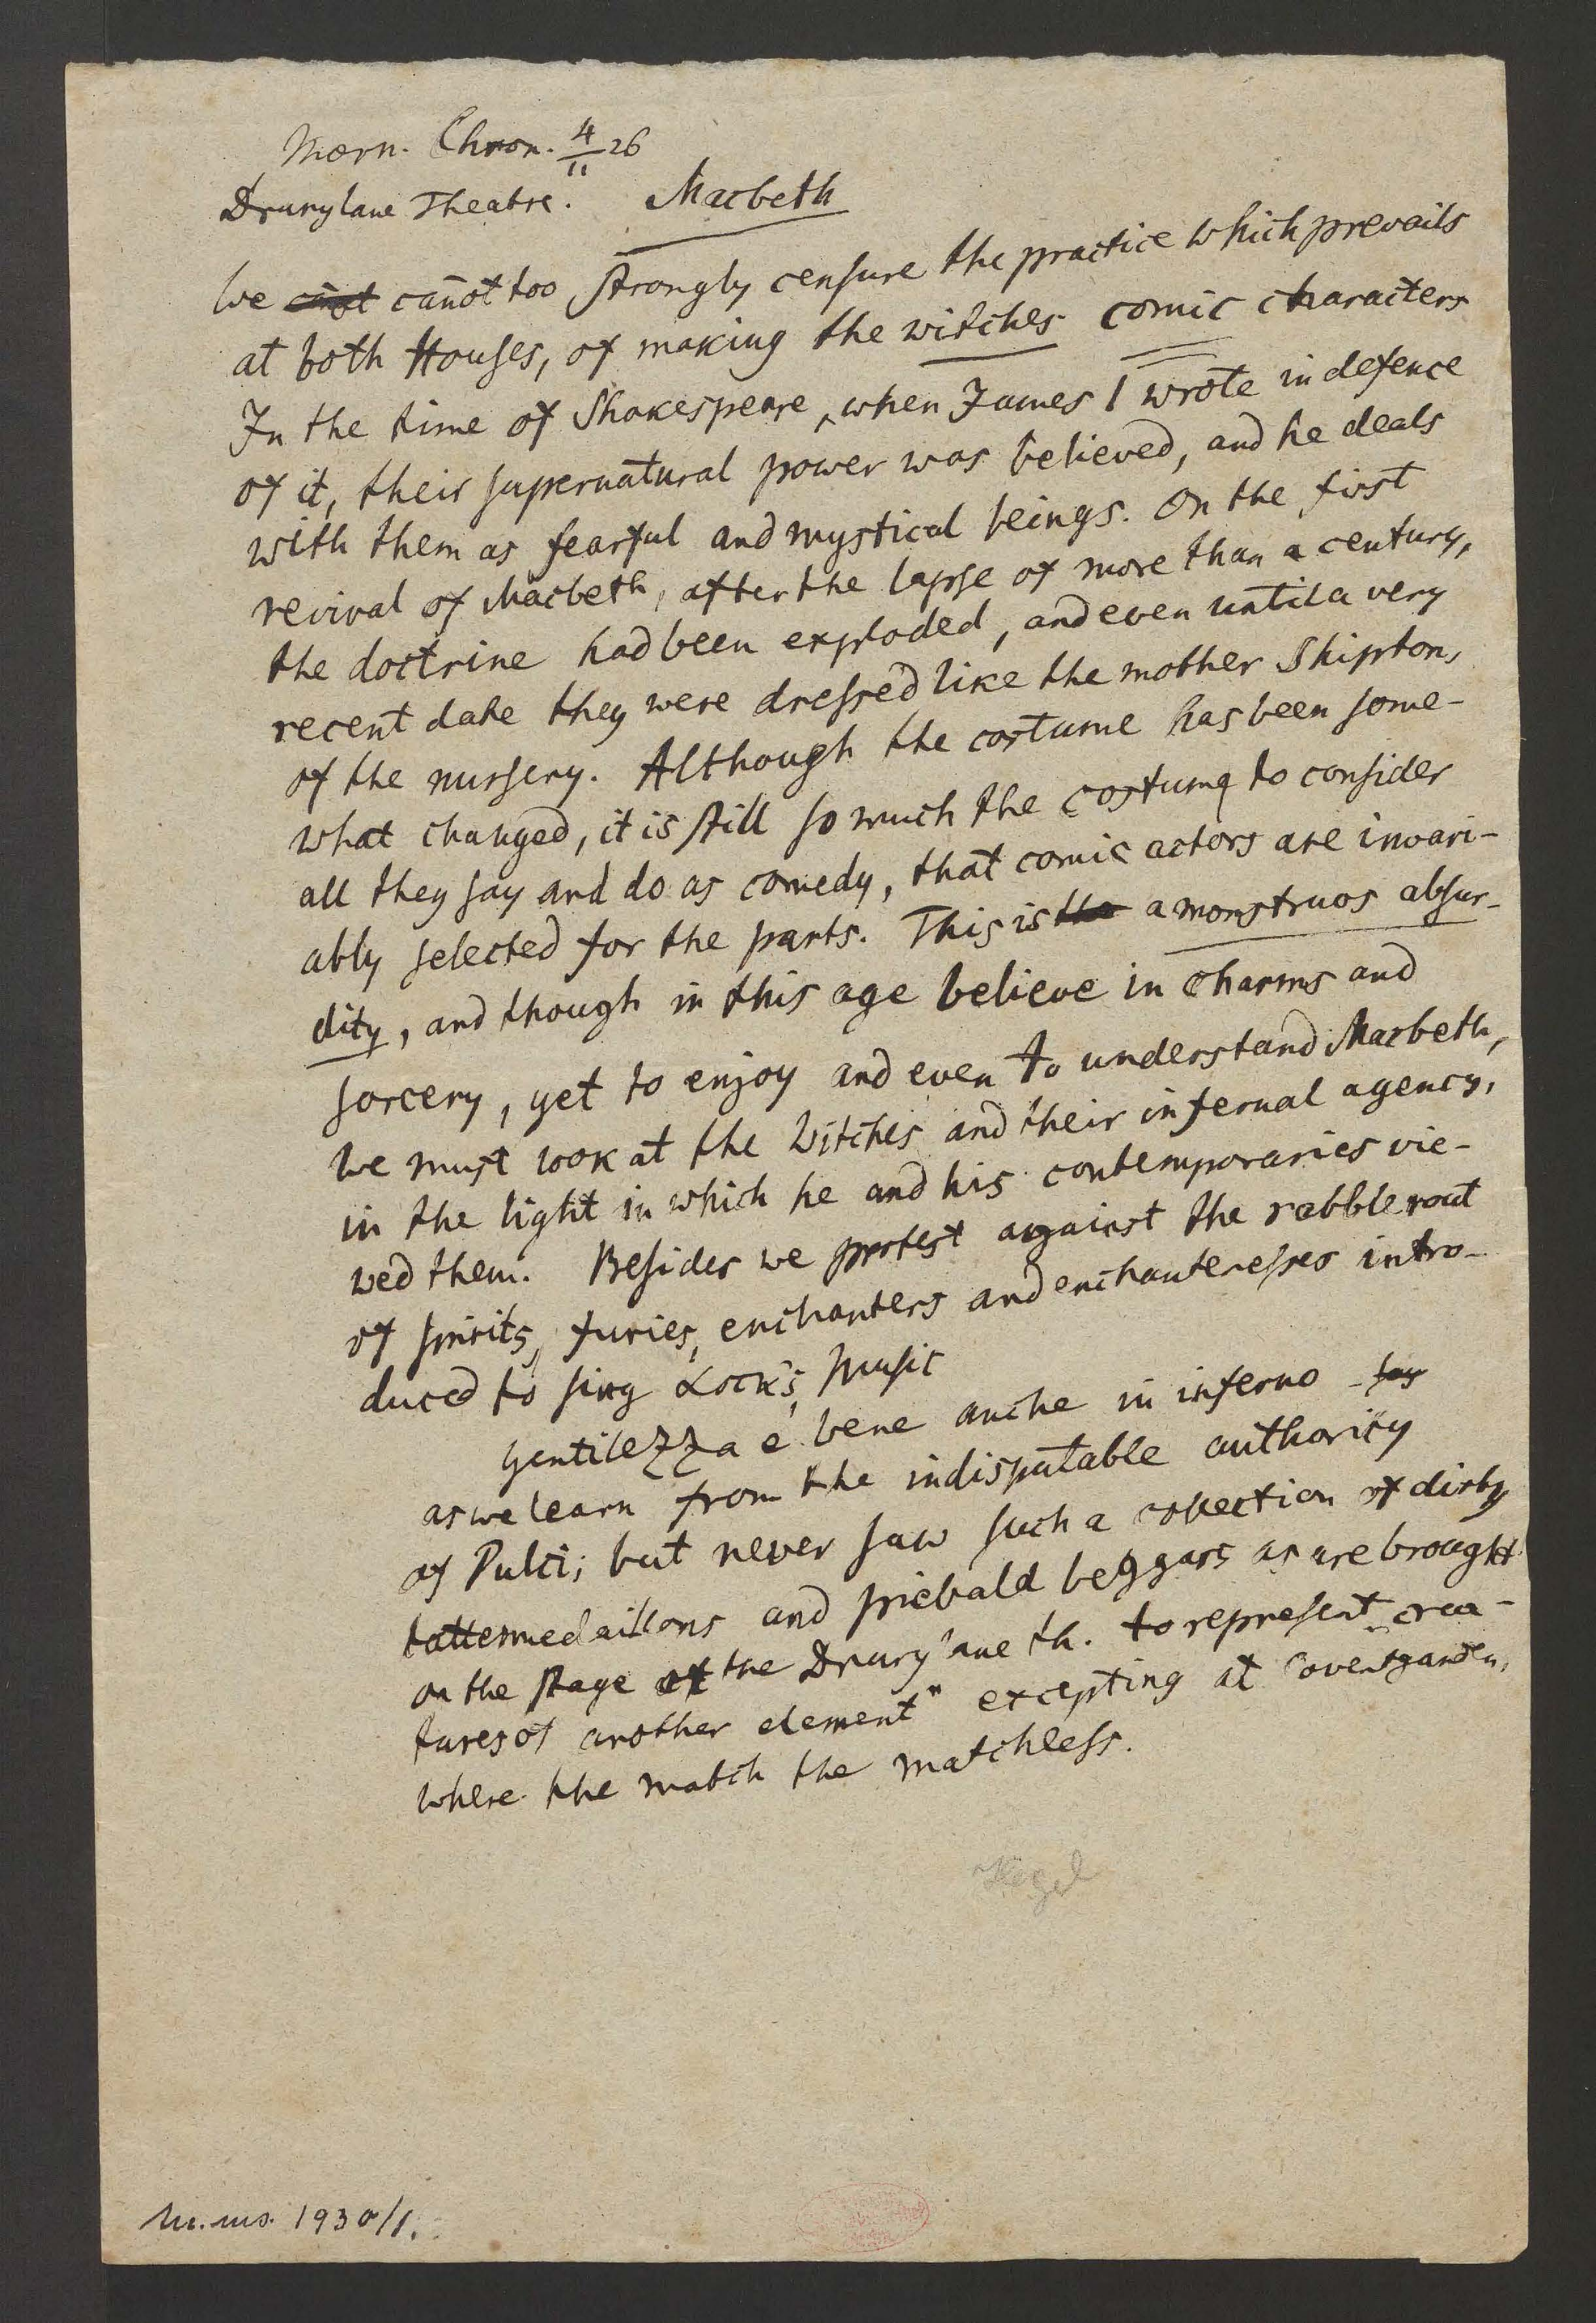 Morn. Chron. 4/11 26
Drurylane Theatre. Macbeth
We cañot too strongly censure the practice which prevails
at both Houses, of making the witches comic characters
In the time of Shakespeare, when James I wrote in defence
of it, their supernatural power was believed, and he deals
with them as fearful and mystical beings. On the first
revival of Macbeth, after the lapse of more than a century,
the doctrine had been exploded, and even until a very
recent date they were dressed like the mother Shiptons
of the nursery. Although the costume has been some-
what changed, it is still so much the costume to consider
all they say and do as comedy, that comic actors are invari-
ably selected for the parts. This is a monstruos absur-
dity, and though in this age believe in charms and
sorcery, yet to enjoy and even to understand Macbeth,
we must look at the Witches and their infernal agency,
in the light in which he and his contemporaries vie-
wed them. Besides we protest against the rabble rout
of spirits, furies, enchanters and enchanteresses intro-
duced to sing Lock's Music
gentilezza e' bene anche in inferno -
as we learn from the indisputable authority
of Pulci; but never saw such a collection of dirty
tattermedaillons and piebald beggars as are brought
on the stage of the Drury lane th. to represent "crea-
tures of another element" excepting at Coventgarden,
where the match the matchless.
Hegel
M. ms. 1930/1.